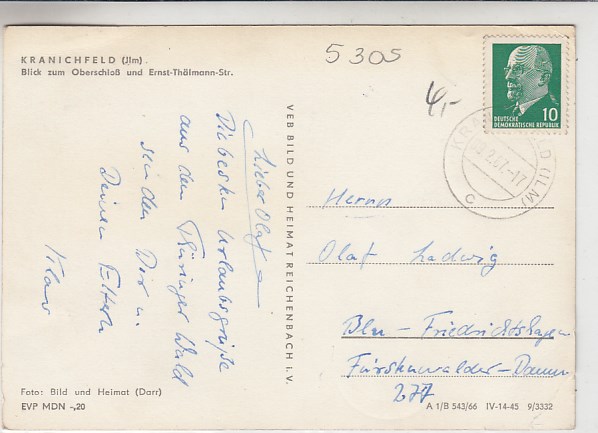 KRANICHFELD (Jlm)
Blick zum Oberschloß und Ernst-Thälmann-Str.
5305
4,-
DEUTSCHE
DEMOKRATISCHE REPUBLIK
10
KRANICHFELD (ILM)
2.67.-17
c
Lieber Olaf
Die besten Urlaubsgrüße
aus dem Thüringer Wald
senden Dir u.
Deinen Eltern
VEB BILD UND HEIMAT REICHENBACH I. V.
Herrn
Olaf Ladwig
Bln - Friedrichshagen
Fürstenwalder-Damm
277
Foto: Bild und Heimat (Darr)
EVP MDN -,20
A 1/B 543/66 IV-14-45 9/3332